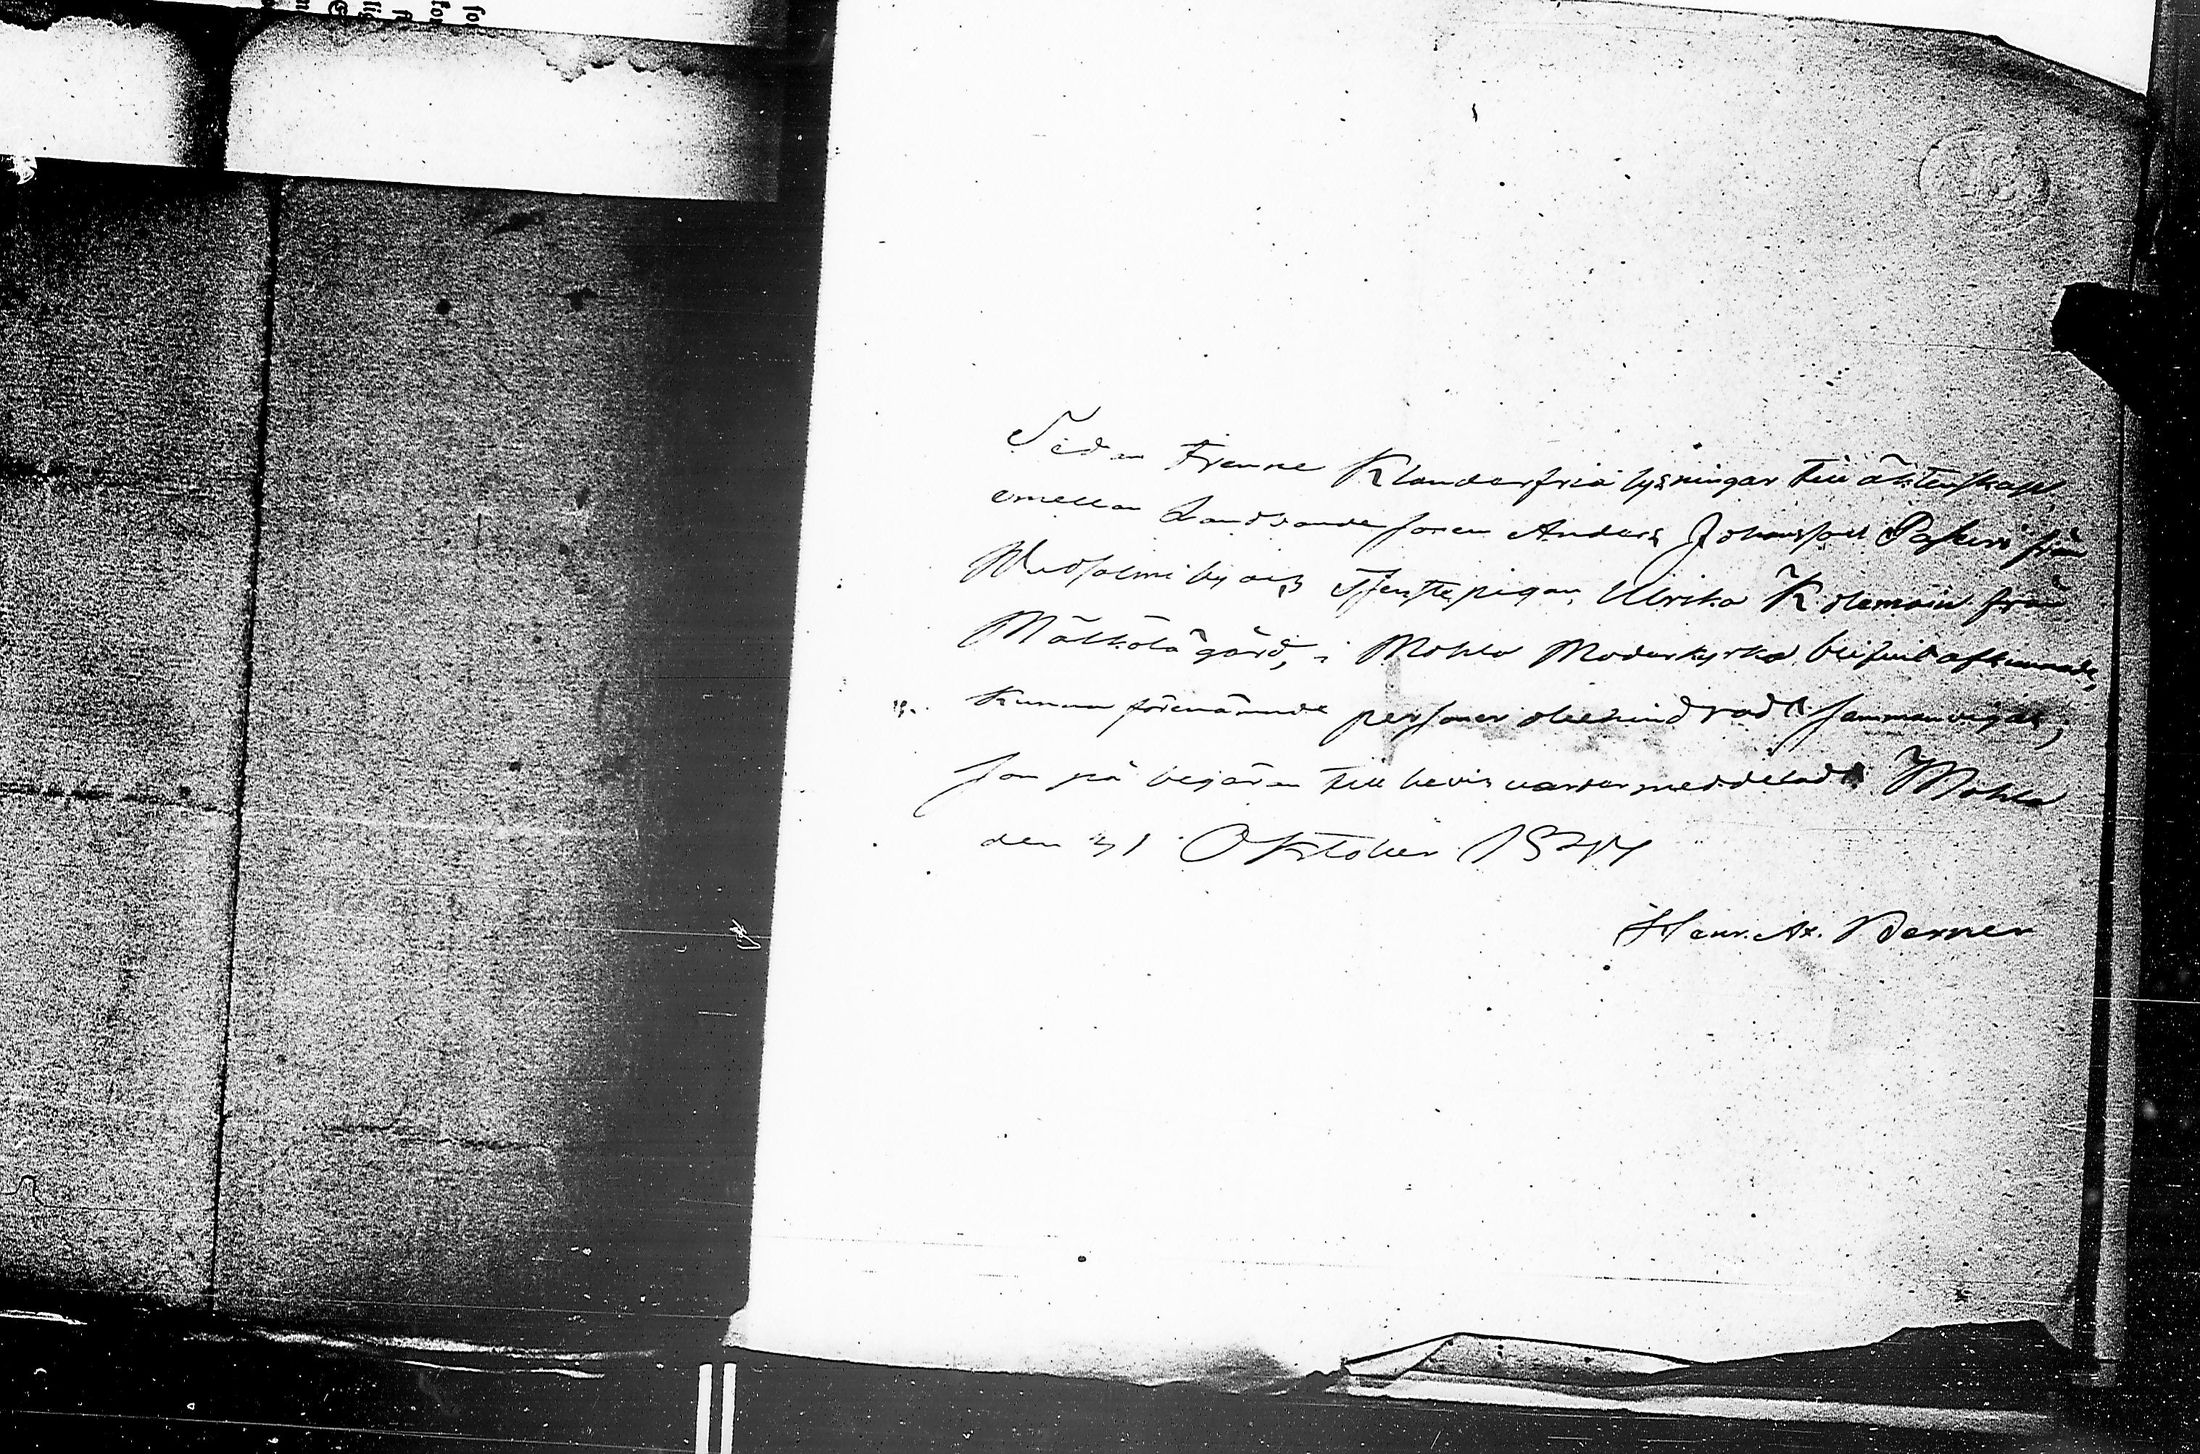 Sedan trenne Klanderfria lysningar till äktenskap
emellan Landbonde sonen Anders Johansson från
by och Tjenstepigan Ulrika från
gård, i Mohla Moderkyrka blifvit afkunnade,
Kunna förenämnde personer obehindradt sammanvigas;
som på begäran till bevis varder meddeladt. Mohla
den 31 Oktober
Henr. Ax. Berner